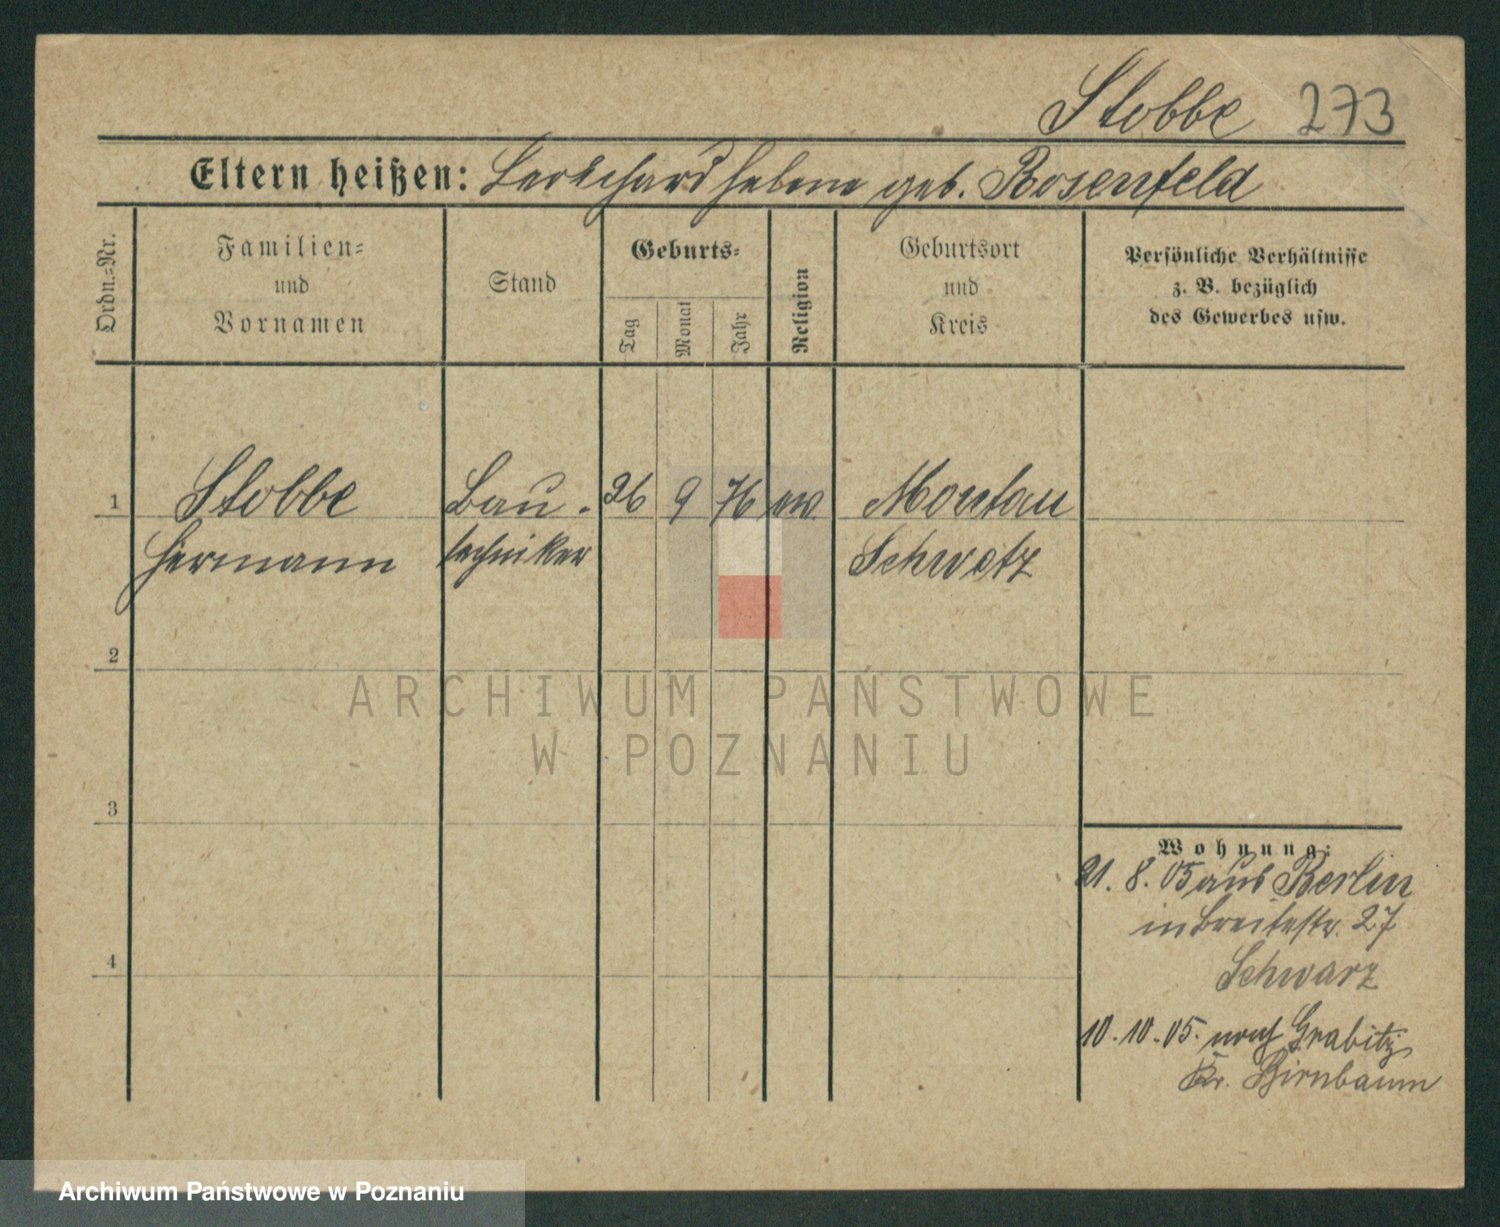 Stobbe 273
Eltern heißen: Helene geb. Rosenfeld
Ordn.-Nr.
Familien-
und
Vornamen
Stand
Geburts-
Tag
Monat
Jahr
Religion
Geburtsort
und
Kreis
Persönliche Verhältnisse
z. B. bezüglich
des Gewerbes usw.
1 Stobbe Bau- 26 9 76 Montau
Hermann techniker Schwetz
2
3
4
Wohnung:
21. 8. 05 aus Berlin
in Breitestr. 27
Schwarz
10. 10. 05. nach Grabitz
Kr. Birnbaum
ARCHIWUM PAŃSTWOWE
W POZNANIU
Archiwum Państwowe w Poznaniu